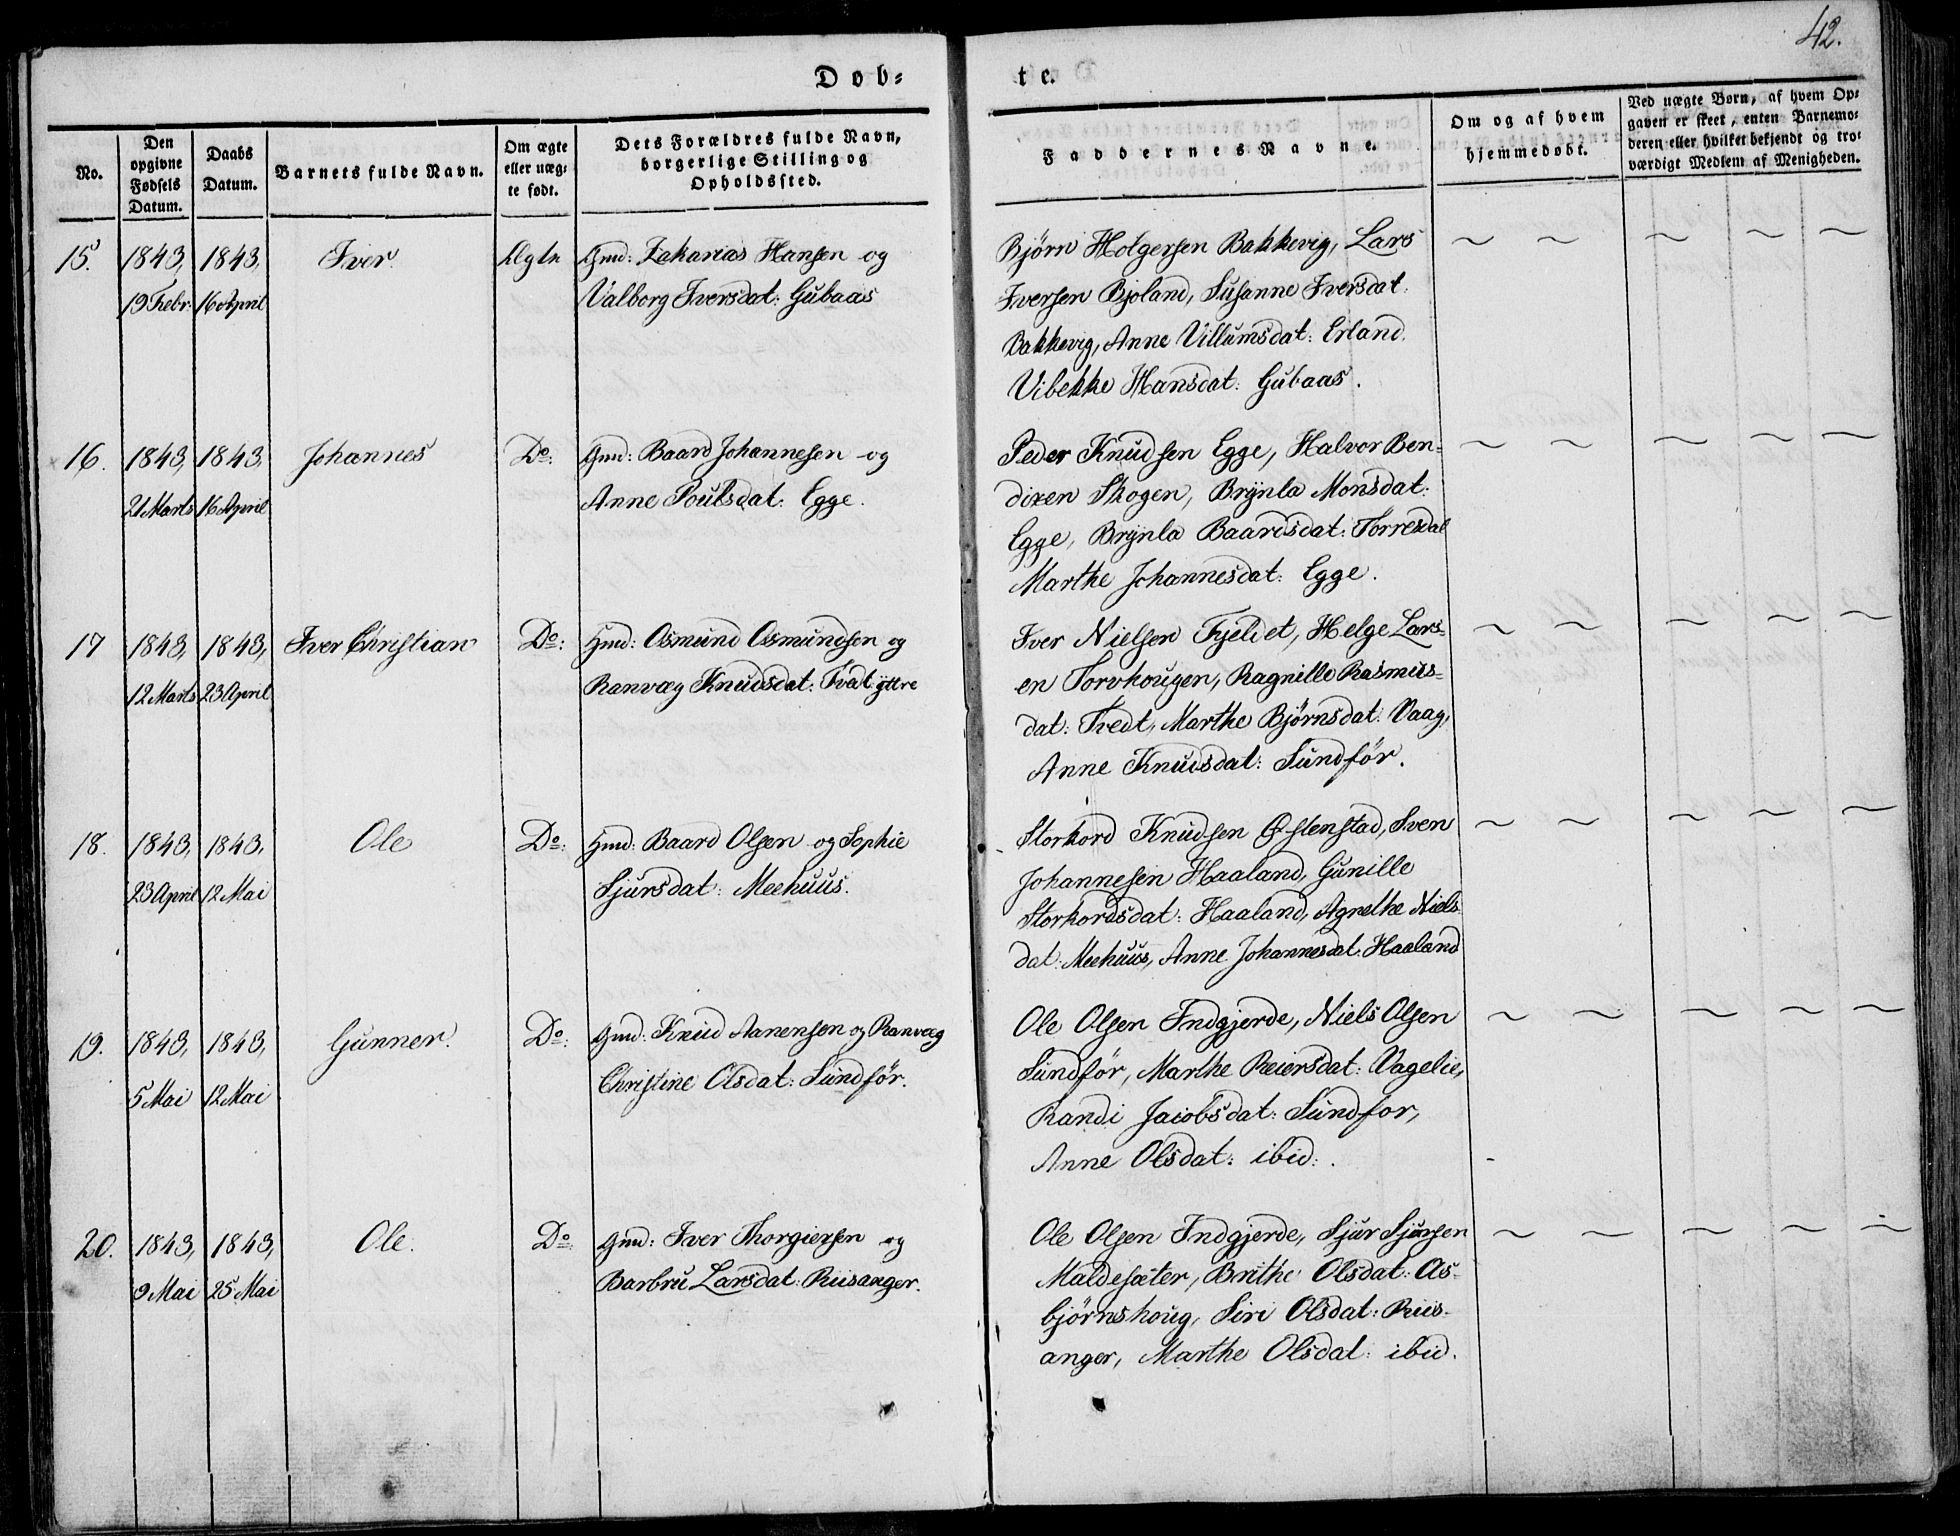 42.
Døb=
te.
No.
Den opgivne Fødsels Datum.
Daabs Datum.
Barnets fulde Navn.
Om ægte eller uæg= te født.
Dets Forældres fulde Navn, borgerlige Stilling og Opholdssted.
Faddernes Navne.
Om og af hvem hjemmedøbt.
Ved uægte Børn, af hvem Op= gaven er skeet, enten Barnemo= deren eller hvilket bekjendt og tro= værdigt Medlem af Menigheden.
15. 1843, 1843, Iver. Ægte Gmd: Zakarias Hansen og
19 Febr: 16 April Valborg Iversdat: Gubaas
Bjørn Holgersen Bakkevig, Lars
Iversen Bjoland, Susanne Iversdat:
Bakkevig, Anne Villumsdat: Erland.
Vibekke Hansdat: Gubaas.
16. 1843, 1843, Johannes Do: Gmd: Baard Johannesen og
21 Marts 16 April Anne Poulsdat: Egge.
Peder Knudsen Egge, Halvor Ben=
dixen Skogen, Brynla Monsdat:
Egge, Brynla Baardsdat: Torresdal
Marthe Johannesdat: Egge.
17 1843, 1843, Iver Christian Do: Hmd: Osmund Osmundsen og
12 Marts 23 April Ranvæg Knudsdat: Tvedt yttre
Iver Nielsen Fjeldet, Helge Lars=
en Torvhougen, Ragnille Rasmus=
dat: Tvedt, Marthe Bjørnsdat: Vaag,
Anne Knudsdat: Sundfør.
18. 1843, 1843, Ole Do: Hmd: Baard Olsen og Sophie
23 April 12 Mai Sjursdat: Meehuus.
Storkord Knudsen Østenstad, Sven
Johannesen Haaland, Gunille
Storkordsdat: Haaland, Agnethe Niels
dat: Meehuus, Anne Johannesdat: Haaland
19. 1843, 1843, Gunner. Do: Gmd: Knud Aanensen og Ranvæg
5 Mai 12 Mai Christine Olsdat: Sundfør.
Ole Olsen Indgjerde, Niels Olsen
Sundfør, Marthe Reiersdat: Vagelie,
Randi Jacobsdat: Sundfor,
Anne Olsdat: ibid:.
20. 1843, 1843, Ole. Do: Gmd: Iver Thorgiersen og
9 Mai 25 Mai Barbru Larsdat: Riisanger.
Ole Olsen Indgjerde, Sjur Sjursen
Maldesæter, Brithe Olsdat: As=
bjørnshoug, Siri Olsdat: Riis=
anger, Marthe Olsdat: ibid.